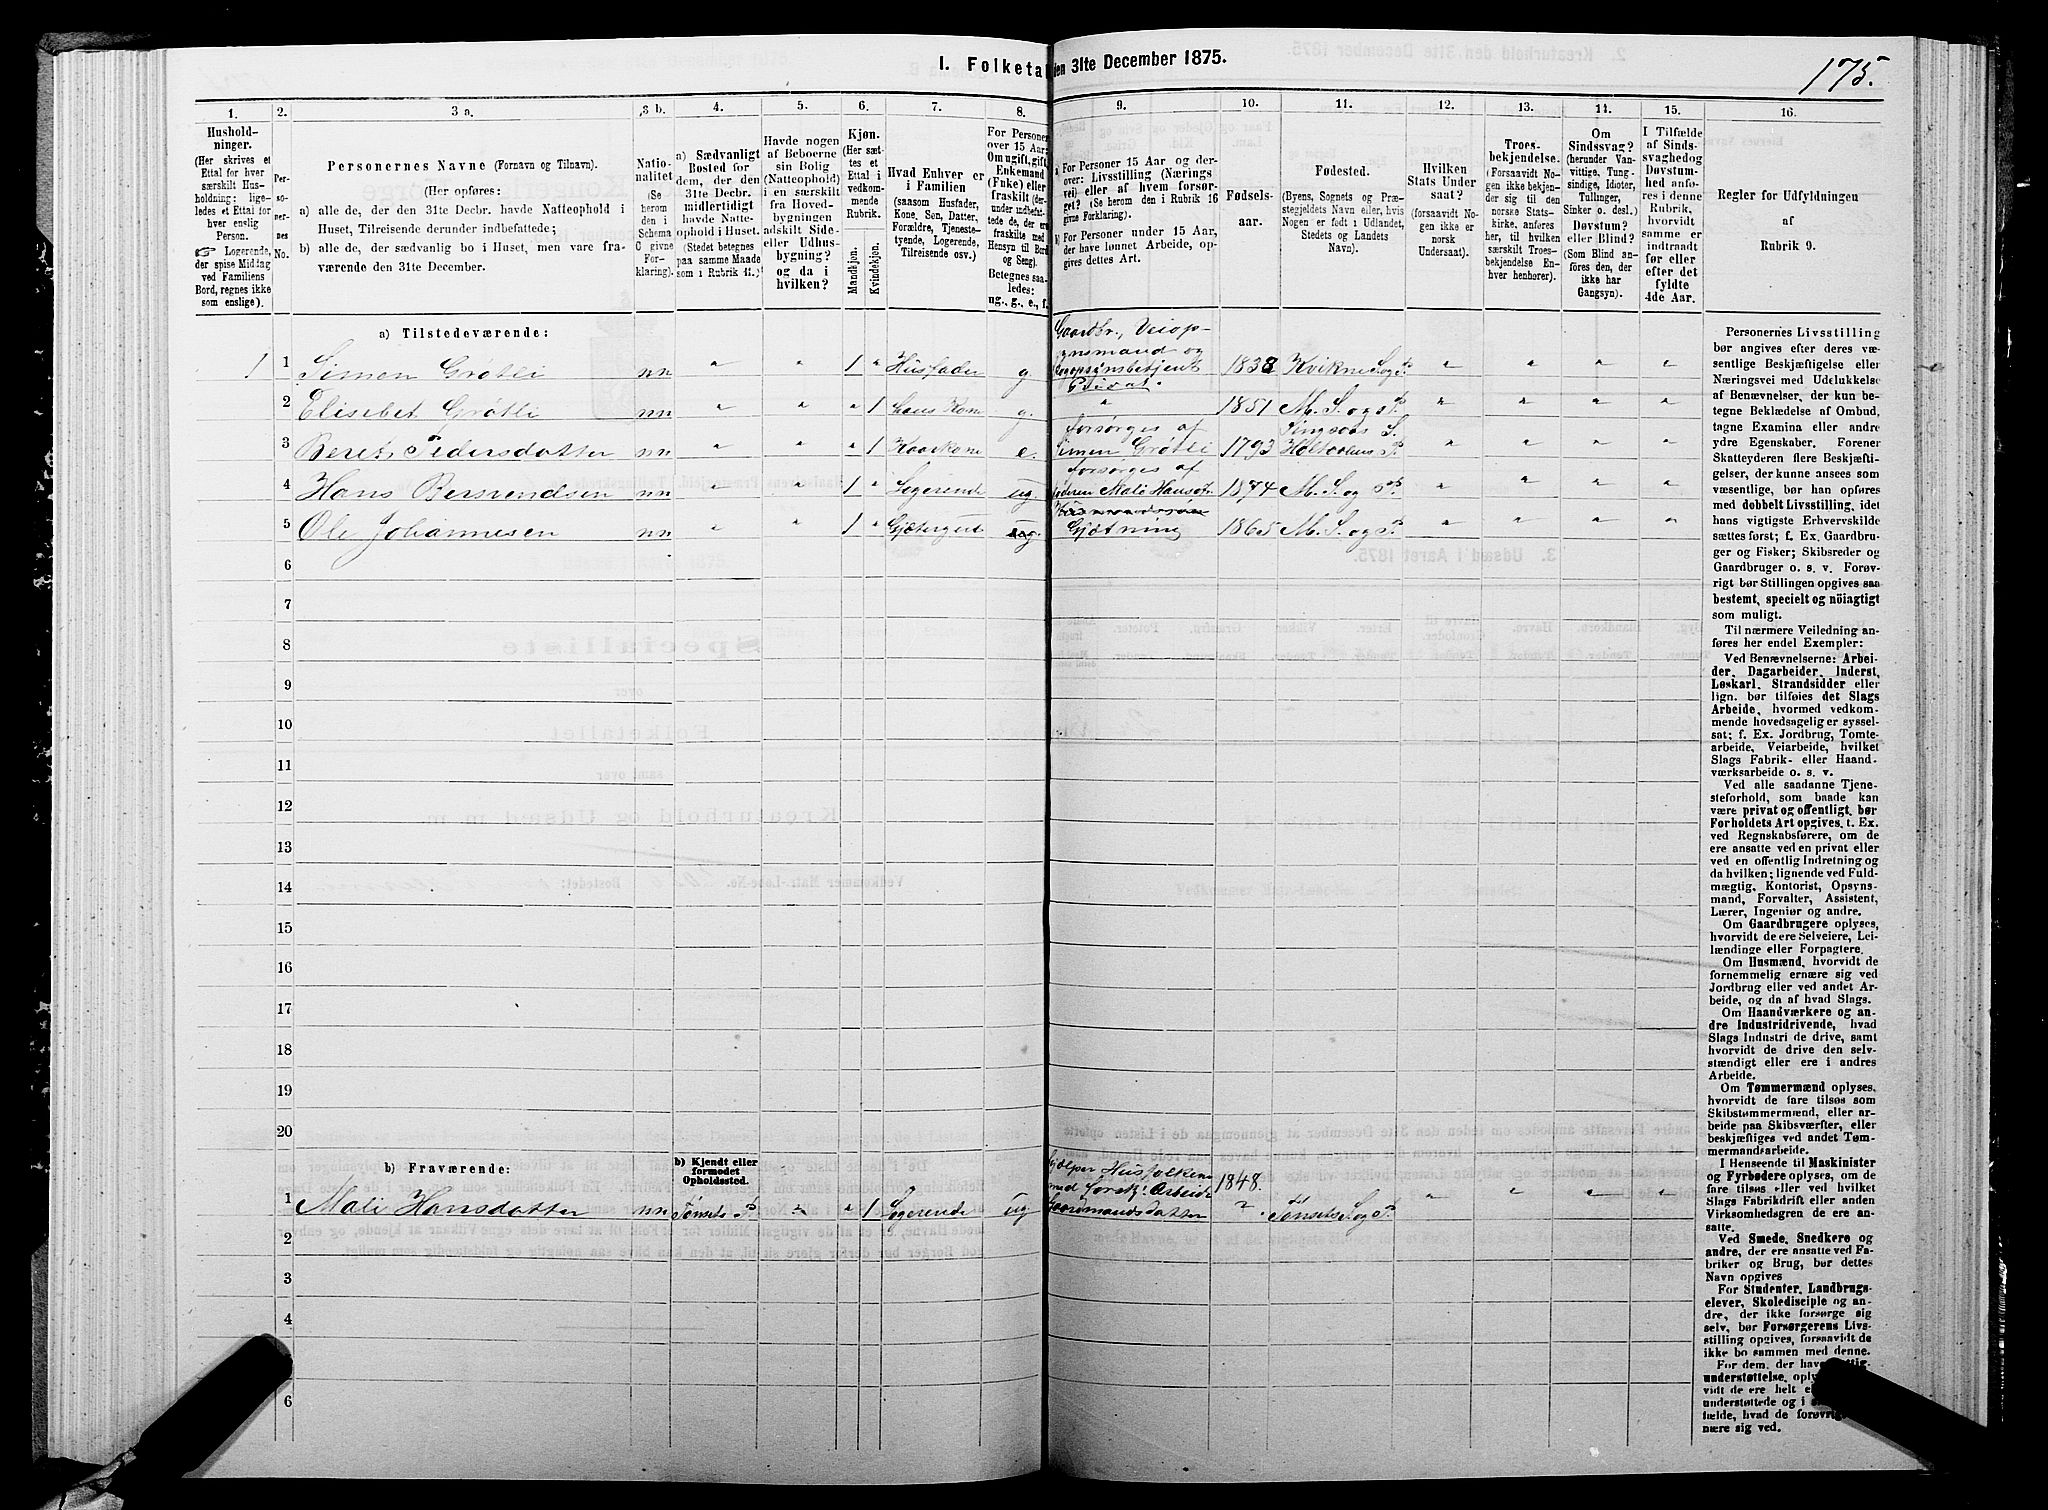 I. Folketa
den 31te December 1875.
175.
1.
2.
3 a.
3 b.
4.
5.
6.
7.
8.
9.
10.
11.
12.
13.
14.
15.
16.
Hushold-
ninger.
(Her skrives et
Ettal for hver
særskilt Hus-
holdning: lige-
ledes et Ettal for
hver enslig
Person.
Logerende,
der spise Middag
ved Familiens
Bord, regnes ikke
som enslige).
Per-
so-
ner-
nes
No.
Personernes Navne (Fornavn og Tilnavn).
(Her opføres:
a) alle de, der den 31te Decbr. havde Natteophold i
Huset, Tilreisende derunder indbefattede;
b) alle de, der sædvanlig bo i Huset, men vare fra-
værende den 31te December.
Natio-
nalitet
(Se
herom
den i
Schema
C givne
For-
klaring).
a) Sædvanligt
Bosted for
dem, der den
31te Decbr.
midlertidigt
havde Natte-
ophold i Huset.
(Stedet betegnes
paa samme Maade
som i Rubrik 11.)
Havde nogen
af Beboerne
sin Bolig
(Natteophold)
i en særskilt
fra Hoved-
bygningen
adskilt Side-
eller Udhus-
bygning?
og da i
hvilken?
Kjøn.
(Her sæt-
tes et
Ettal i
vedkom-
mende
Rubrik.
Mandkjøn.
Kvindekjøn.
Hvad Enhver er
i Familien
(saasom Husfader,
Kone, Søn, Datter,
Forældre, Tjeneste-
tyende, Logerende,
Tilreisende osv.)
For Personer
over 15 Aar:
Om ugift, gift,
Enkemand
(Enke) eller
fraskilt (der-
under indbefat-
tede de, der ere
fraskilte med
Hensyn til Bord
og Seng).
Betegnes saa-
ledes:
ug., g., e., f.
a) For Personer 15 Aar og der-
over: Livsstilling (Nærings
vei) eller af hvem forsør-
get? (Se herom i Rubrik 16
givne Forklaring).
b) For Personer under 15 Aar,
der have lønnet Arbeide, op-
gives dettes Art.
Fødsels-
aar.
Fødested.
(Byens, Sognets og Præ-
stegjeldets Navn eller, hvis
Nogen er født i Udlandet,
Stedets og Landets
Navn).
Hvilken
Stats Under
saat?
(forsaavidt No-
gen ikke er
norsk
Undersaat).
Troes-
bekjendelse.
(Forsaavidt No-
gen ikke bekjen-
der sig til den
norske Stats-
kirke, anføres
her, til hvilken
særskilt Troes-
bekjendelse En-
hver henhører).
Om
Sindssvag?
(herunder Van-
vittige, Tung-
sindige, Idioter,
Tullinger,
Sinker o. desl.)
Døvstum?
eller Blind?
(Som Blind an-
føres den, der
ikke har
Gangsyn).
I Tilfælde
af Sinds-
svaghed og
Døvstum-
hed anfø-
res i denne
Rubrik,
hvorvidt
samme er
indtraadt
før eller
efter det
fyldte
4de Aar.
Regler for Udfyldningen
af
Rubrik 9.
a) Tilstedeværende:
Gaardbr., Veiop-
1 1 Simen Grøtli nn " " 1 " Husfader g. Privat. 1838 Kvikne S. og P. " " " "
2 Elisebet Grøtli nn " " " 1 hans Kone g. " 1851 M. S. og P. " " " "
forsørges af Singsaas S.
3 Beret Pedersdatter nn " " " 1 Kaarkone e. Simen Grøtli 1793 Holtaalens P. " " " "
forsørges af
4 Hans Bersvendsen nn " " 1 " Logerende ug. Mali Hansdr. 1874 M. S. og P. " " " "
5 Ole Johannesen nn " " 1 " Gjætergut ug. Gjætning 1865 M. S. og P. " " " "
6
7
8
9
10
11
12
13
14
15
16
17
18
19
20
b) Fraværende:
b) Kjendt eller
formodet
Opholdssted.
hjælper Husfolkene
med forsk. Arbeide 1848.
1 Mali Hansdatter nn Tønsets P. " " 1 Logerende ug Gaardmandsdatter ? Tønsets S. og P. " " " "
2
3
4
5
6
Personernes Livsstilling
bør angives efter deres væ-
sentlige Beskjæftigelse eller
Næringsvei med Udelukkelse
af Benævnelser, der kun be-
tegne Beklædelse af Ombud,
tagne Examina eller andre
ydre Egenskaber. Forener
Skatteyderen flere Beskjæfti-
gelser, der kunne ansees som
væsentlige, bør han opføres
med dobbelt Livsstilling, idet
hans vigtigste Erhvervskilde
sættes først; f. Ex. Gaardbru-
ger og Fisker; Skibsreder og
Gaardbruger o. s. v. Forøv-
rigt bør Stillingen opgives saa
bestemt, specielt og nöiagtigt
som muligt.
Til nærmere Veiledning an-
føres her endel Exempler:
Ved Benævnelserne: Arbei-
der, Dagarbeider, Inderst,
Løskarl, Strandsidder eller
lign. bør tilføies det Slags
Arbeide, hvormed vedkom-
mende hovedsagelig er syssel-
sat; f. Ex. Jordbrug, Tomte-
arbeide, Veiarbeide, hvilket
Slags Fabrik- eller Haand-
værksarbeide o. s. v.
Ved alle saadanne Tjene-
steforhold, som baade kan
være privat og offentligt, bør
Forholdets Art opgives, t. Ex.
ved Regnskabsførere, om de
ere ansatte ved en privat eller
ved en offentlig Indretning og
da hvilken; lignende ved Fuld-
mægtig, Kontorist, Opsyns-
mand, Forvalter, Assistent,
Lærer, Ingeniør og andre.
Om Gaardbrugere oplyses,
hvorvidt de ere Selveiere, Lei-
lændinge eller Forpagtere.
Om Husmænd, hvorvidt de
fornemmelig ernære sig ved
Jordbrug eller ved andet Ar-
beide, og da af hvad Slags.
Om Haandværkere og an-
dre Industridrivende, hvad
Slags Industri de drive, samt
hvorvidt de drive den selv-
stændigt eller ere i andres
Arbeide.
Om Tømmermænd oplyses,
hvorvidt de fare tilsøs som
Skibstømmermænd, eller ar-
beide paa Skibsværfter, eller
beskjæftiges ved andet Tøm-
mermandsarbeide.
I Henseende til Maskinister
og Fyrbødere oplyses, om de
fare tilsøs eller ved hvilket
Slags Fabrikdrift eller anden
Virksomhedsgren de ere an-
satte.
Ved Smede, Snedkere og
andre, der ere ansatte ved Fa-
briker og Brug, bør dettes
Navn opgives
For Studenter, Landbrugs-
elever, Skoledisciple og an-
dre, der ikke forsørge sig
selv, bør Forsørgerens Livs-
stilling opgives, forsaavidt de
ikke bo sammen med denne.
For dem, der have
understøttelse,
vidt de ere helt
understøttede og i
fælde, hvad de forøvrig
nære sig ved.